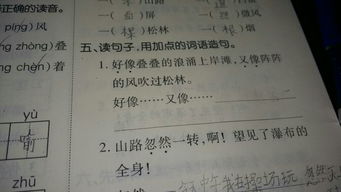 正确的读音。
píng)风
ng zhòng)叠叠
ng chén)着
yù
喻
zhū
—( )山路
—( )屏
—( )微风
—( )松林
—( )烟
五、读句子,用加点的词语造句。
1. 好像叠叠的浪涌上岸滩,又像阵阵
的风吹过松林。
好像……又像……
2. 山路忽然一转,啊!望见了瀑布的
全身!
我在操场玩 忽然